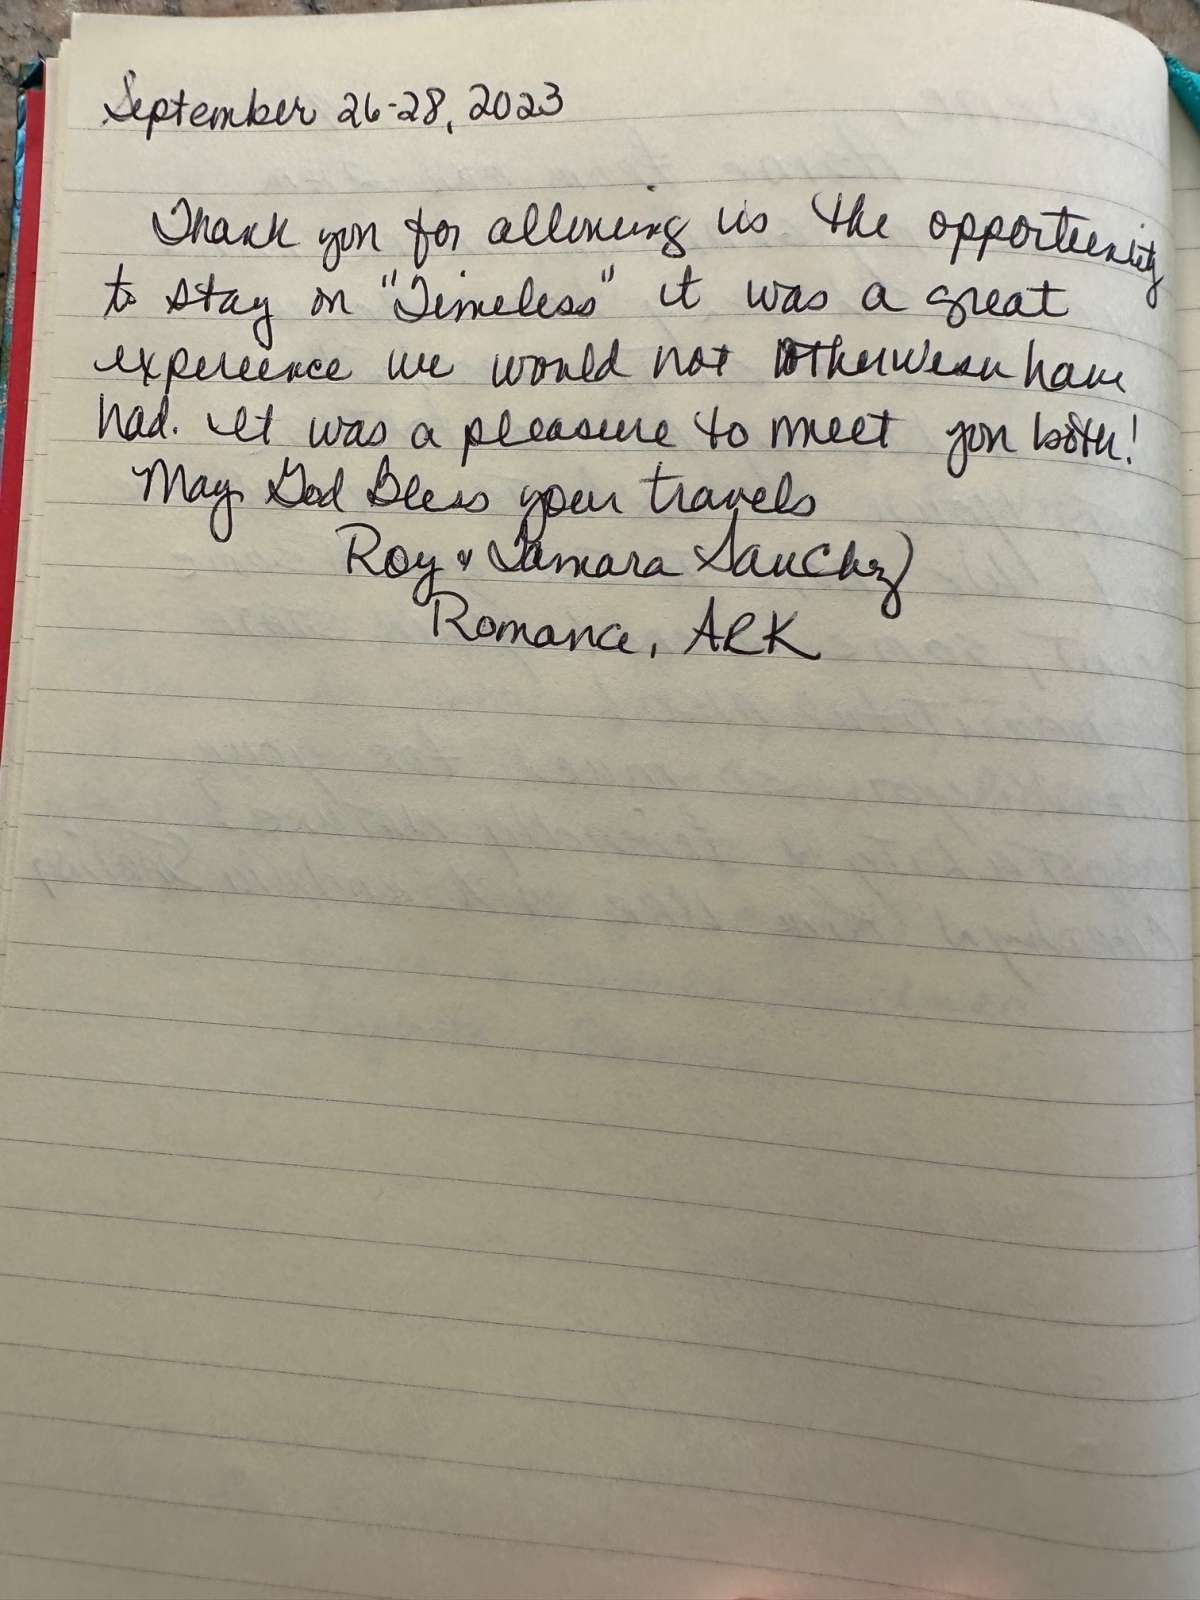 September 26-28, 2023
Thank you for allowing us the opportunity
to stay on "Timeless" it was a great
experience we would not otherwise have
had. It was a pleasure to meet you both!
May God Bless your travels
Roy & Tamara Sanchez
Romance, ARK